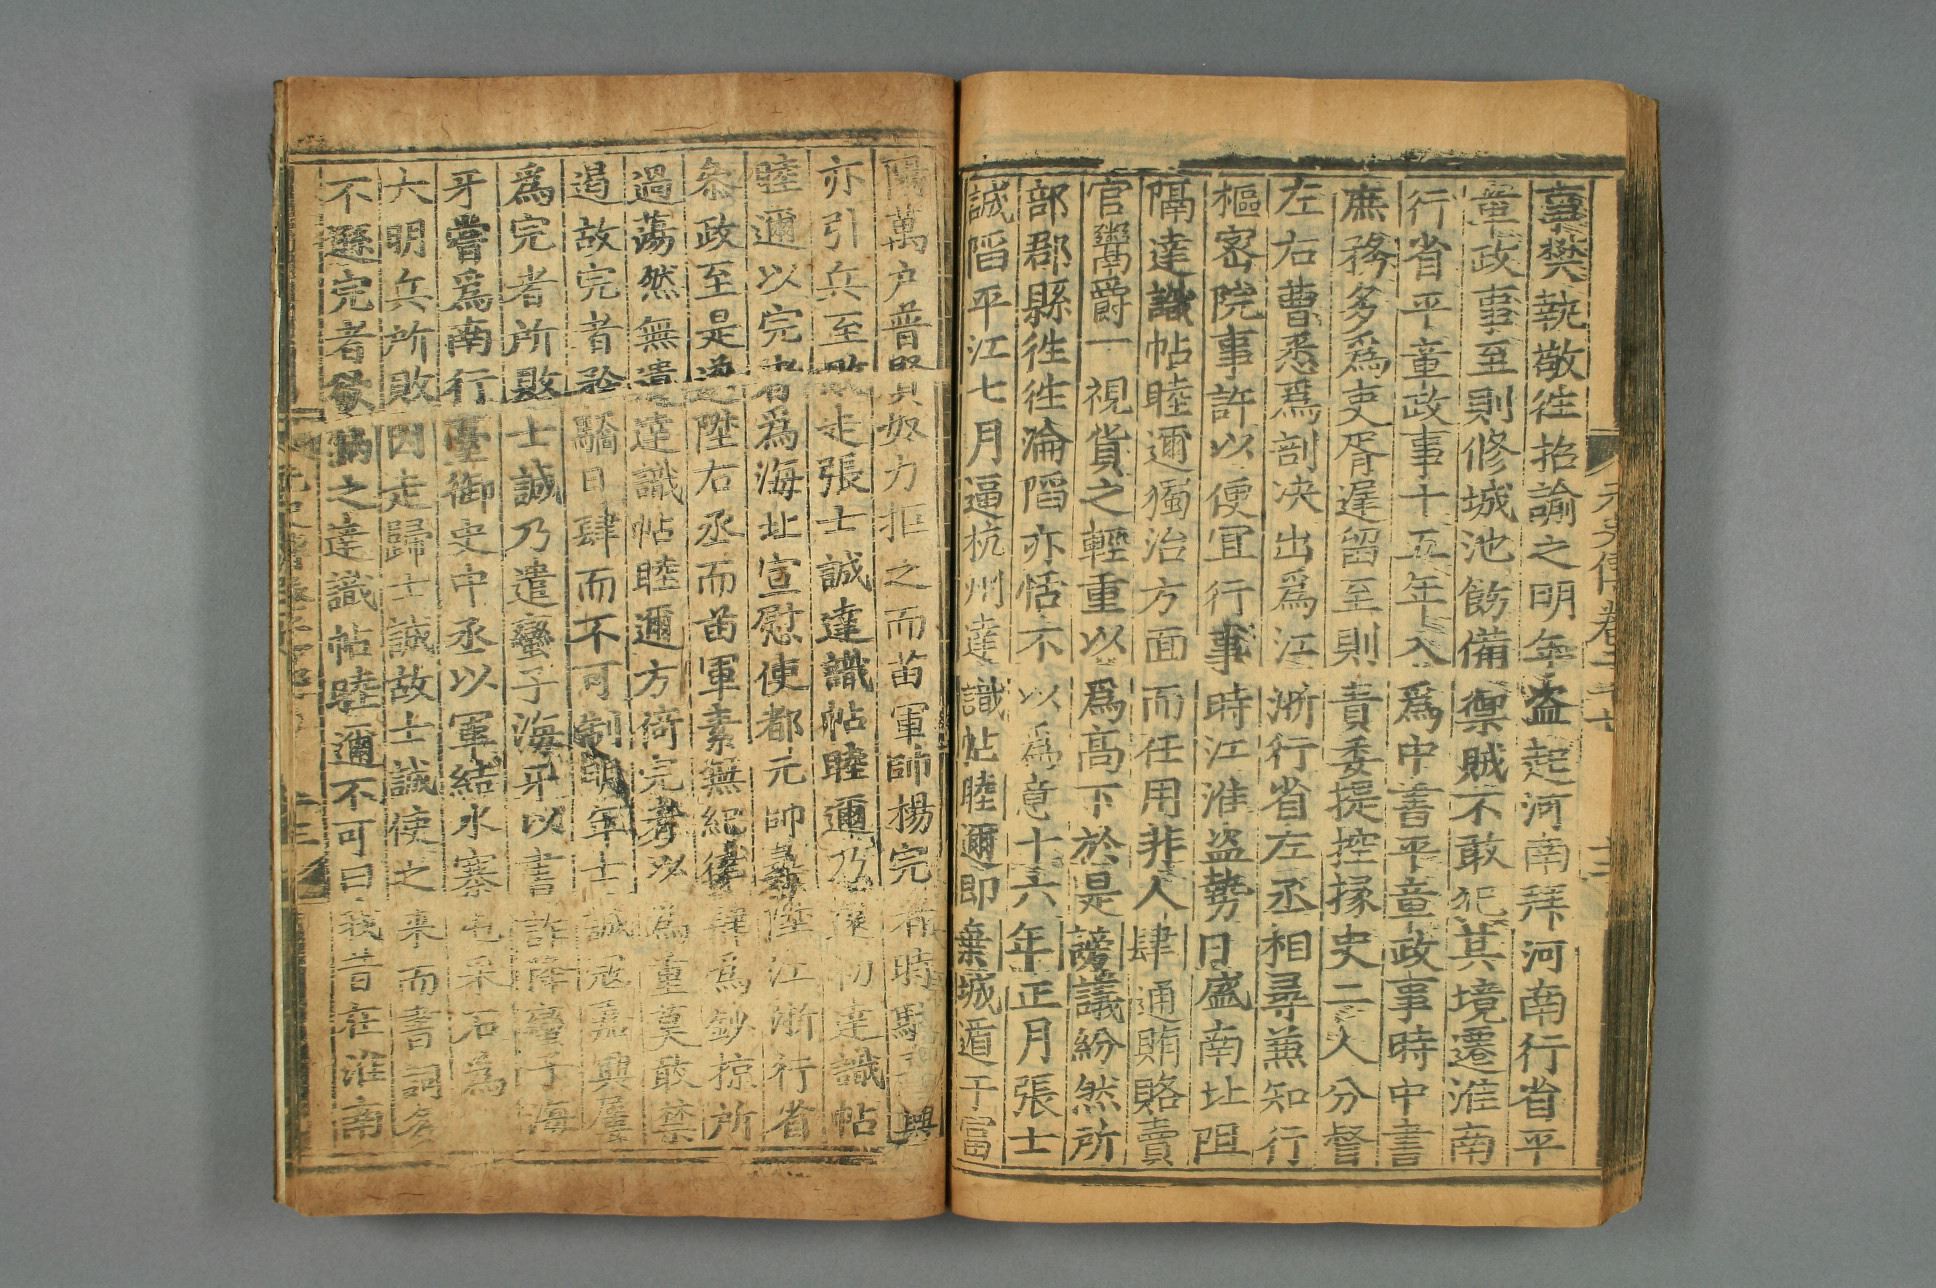 元史傳卷二十七　十二
臺樊執敬往招諭之明年盜起河南拜河南行省平
章政事至則修城池飭備禦賊不敢犯其境遷淮南
行省平章政事十五年入爲中書平章政事時中書
庶務多爲吏胥遲留至則責委提控掾史二人分督
左右曹悉爲剖决出爲江浙行省左丞相尋兼知行
樞密院事許以便宜行事時江淮盗勢日盛南北阻
隔達識帖睦邇獨治方面而任用非人肆通賄賂賣
官鬻爵一視貨之輕重以爲高下於是謗議紛然所
部郡縣往往淪陷亦恬不以爲意十六年正月張士
誠陷平江七月逼杭州達識帖睦邇即棄城遁于富
陽萬户普賢奴力拒之而苗軍帥楊完者時駐嘉興
亦引兵至敗走張士誠達識帖睦邇乃還初達識帖
睦邇以完者爲海北宣慰使都元帥尋陞江浙行省
叅政至是遂陞右丞而苗軍素無紀律肆爲鈔掠所
過蕩然無遺達識帖睦邇方倚完者以爲重莫敢禁
遏故完者矜驕日肆而不可制明年士誠寇嘉興屢
爲完者所敗士誠乃遣蠻子海牙以書詐降蠻子海
牙嘗爲南行臺御史中丞以軍結水寨屯采石爲
大明兵所敗因走歸士誠故士誠使之来而書詞多
不遜完者欲納之達識帖睦邇不可曰我昔在淮南